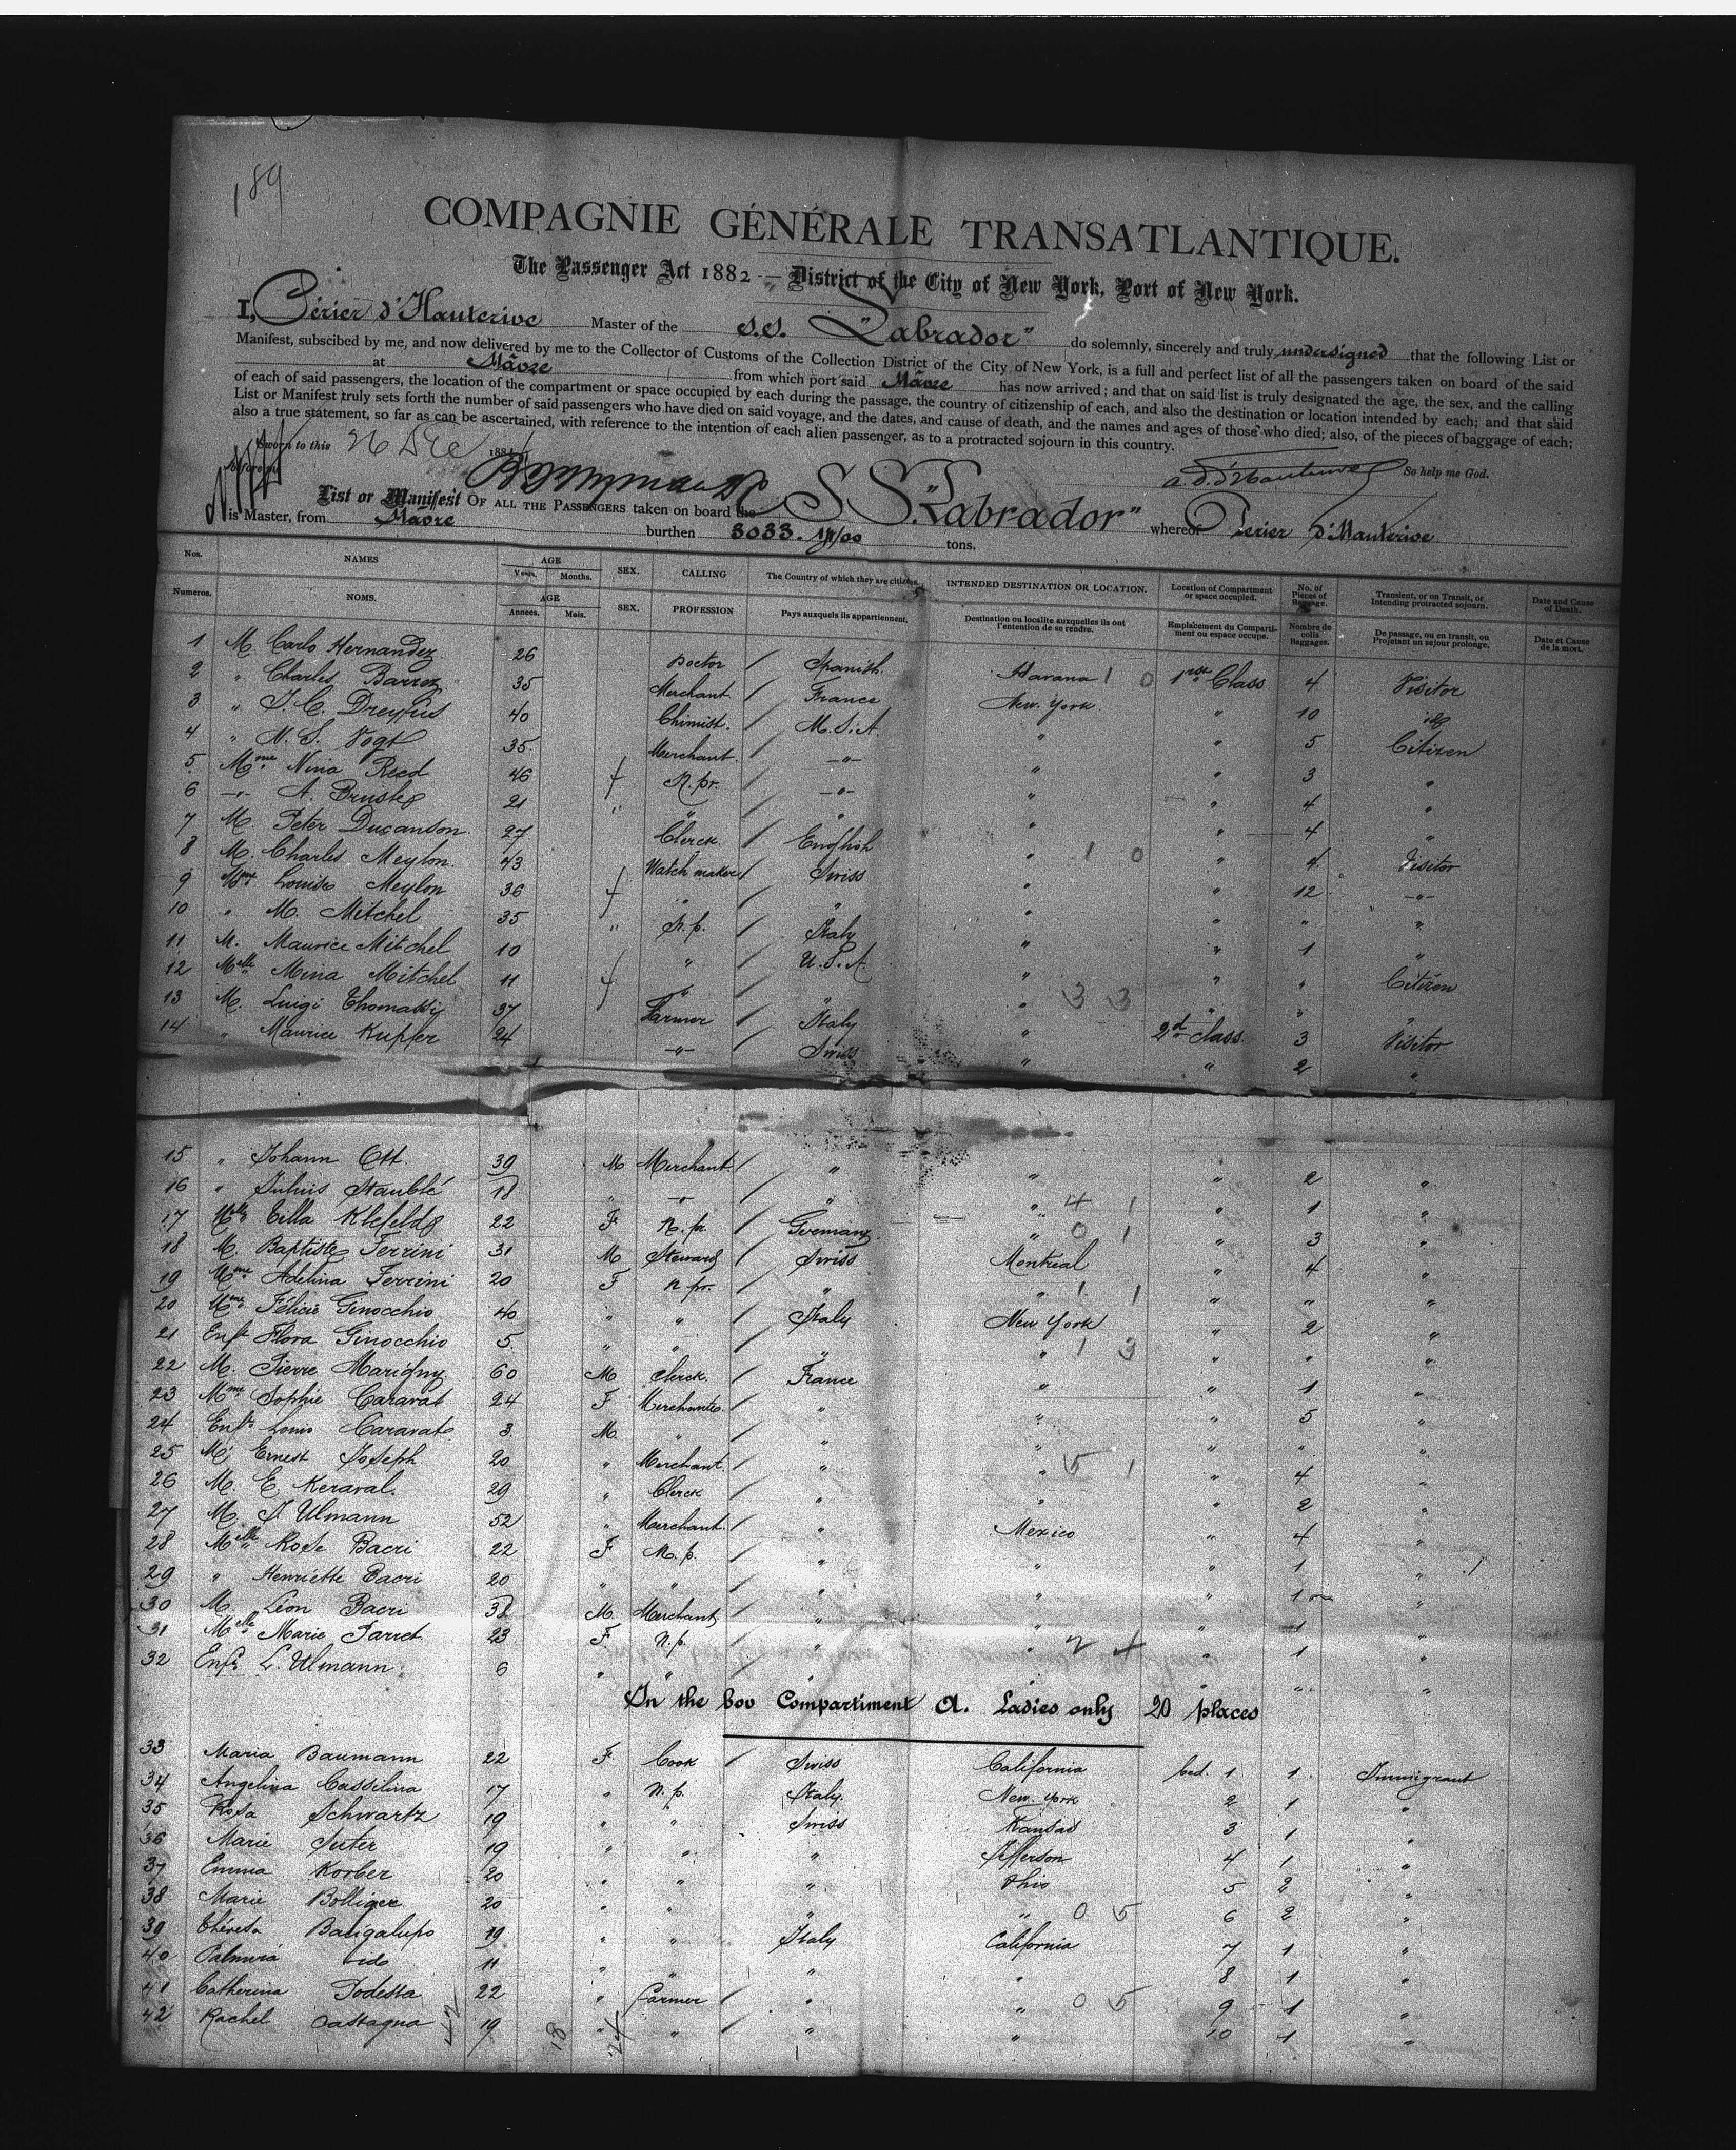 189
COMPAGNIE GÉNÉRALE TRANSATLANTIQUE.
The Passenger Act 1882 — District of the City of New York, Port of New York.
I, Périer d'Hauterive Master of the S.S. "Labrador" do solemnly, sincerely and truly undersigned that the following List or
Manifest, subscibed by me, and now delivered by me to the Collector of Customs of the Collection District of the City of New York, is a full and perfect list of all the passengers taken on board of the said
at Hâvre from which port said Hâvre has now arrived; and that on said list is truly designated the age, the sex, and the calling
of each of said passengers, the location of the compartment or space occupied by each during the passage, the country of citizenship of each, and also the destination or location intended by each; and that said
List or Manifest truly sets forth the number of said passengers who have died on said voyage, and the dates, and cause of death, and the names and ages of those who died; also, of the pieces of baggage of each;
also a true statement, so far as can be ascertained, with reference to the intention of each alien passenger, as to a protracted sojourn in this country.
Sworn to this 26 Dec 188
before me So help me God.
List or Manifest OF ALL THE PASSENGERS taken on board the S.S. "Labrador" whereof Perier d'Hauterive
is Master, from Hâvre burthen 3033. tons.
Nos. NAMES AGE Years. Months. SEX. CALLING The Country of which they are citizens INTENDED DESTINATION OR LOCATION. Location of Compartment or space occupied. No. of Pieces of Baggage. Transient, or on Transit, or Intending protracted sojourn. Date and Cause of Death.
Numeros. NOMS. AGE Années. Mois. SEX. PROFESSION Pays auxquels ils appartiennent. Destination ou localite auxquelles ils ont l'entention de se rendre. Emplacement du Compartiment ou espace occupe. Nombre de colis Baggages. De passage, ou en transit, ou Projetant un sejour prolonge. Date et Cause de la mort.
1 M. Carlo Hernandez 26 Doctor / Spanish Havana 1 0 1rst Class 4 Visitor
2 " Charles Barrez 35 Merchant / France New York " 10 id
3 " J. C. Dreyfus 40 Chimist. / U.S.A. " " 5 Citizen
4 " N. S. Vogt 35 Merchant. / -"- " " 3 "
5 Mme Nina Reed 46 f N. pr. / -"- " " 4 "
6 -"- A. Bruste 21 " " / " " " 4 "
7 M. Peter Ducanson 27 Clerck / English " 1 0 " 4 Visitor
8 M. Charles Meylon. 43 Watch maker / Swiss " " 12 -"-
9 Mme Louise Meylon 36 f " / " " " " "
10 " M. Mitchel 35 " N. p. / Italy " " 1 "
11 M. Maurice Mitchel 10 " / U.S.A. " " " Citizen
12 Melle Mina Mitchel 11 f " / " " 3 3 " " "
13 M. Luigi Thomassy 37 Farmer / Italy " 2d class. 3 Visitor
14 " Maurice Kupfer 24 -"- Swiss " " 2 "
15 " Johann Ott. 39 M Merchant / " " " 2 "
16 " Julius Staublé 18 " -"- / " " 4 1 " 1 "
17 Melle Cilla Klefeld 22 F N. pr. / Germany " 0 1 " 3 "
18 M. Baptiste Ferrini 31 M Steward / Swiss Montreal " 4 "
19 Mme Adelina Ferrini 20 F n pr. / " " 1 1 " " "
20 Mme Félicie Ginocchio 40 " " / Italy New York " 2 "
21 Enft Flora Ginocchio 5. " " / " " 1 3 " " "
22 M. Pierre Marigny 60 M Clerck / France " " 1 "
23 Mme Sophie Caravat 24 F Merchante / " " " 5 "
24 Enft Louis Caravat 3. M " / " " " " "
25 M. Ernest Joseph 20 " Merchant. / " " 5 1 " 4 "
26 M. E. Keraval 29 " Clerck / " " " 2 "
27 M. J. Ulmann 52 " Merchant. / " Mexico " 4 "
28 Melle Rose Bacri 22 F N. p. / " " " 1 "
29 " Henriette Bacri 20 " " / " " " 1 "
30 M. Léon Bacri 38 M. Merchant / " " " 1 "
31 Melle Marie Parret 23 F. N. p. / " " 2 4 " 1 "
32 Enft L. Ulmann 6 " " / " " " " "
In the bov Compartiment A. Ladies only 20 places
33 Maria Baumann 22 F. Cook / Swiss California bed. 1 1. Immigrant
34 Angelina Cassilina 17 " N. p. / Italy. New. York 2 1 "
35 Rosa Schwartz 19 " " / Swiss Kansas 3 1 "
36 Marie Suter 19 " " / " Jefferson 4 1 "
37 Emma Korber 20 " " / " Ohio 5 2 "
38 Marie Bolliger 20 " " / " " 0 5 6 2 "
39 Théresa Bacigalupo 19 " " / Italy California 7 1 "
40 Palmira id 11 " " / " " 8 1 "
41 Catherina Podesta 22 " Farmer / " " 0 5 9 1 "
42 Rachel Castagna 19 " " / " " 10 1 "
42 18 24